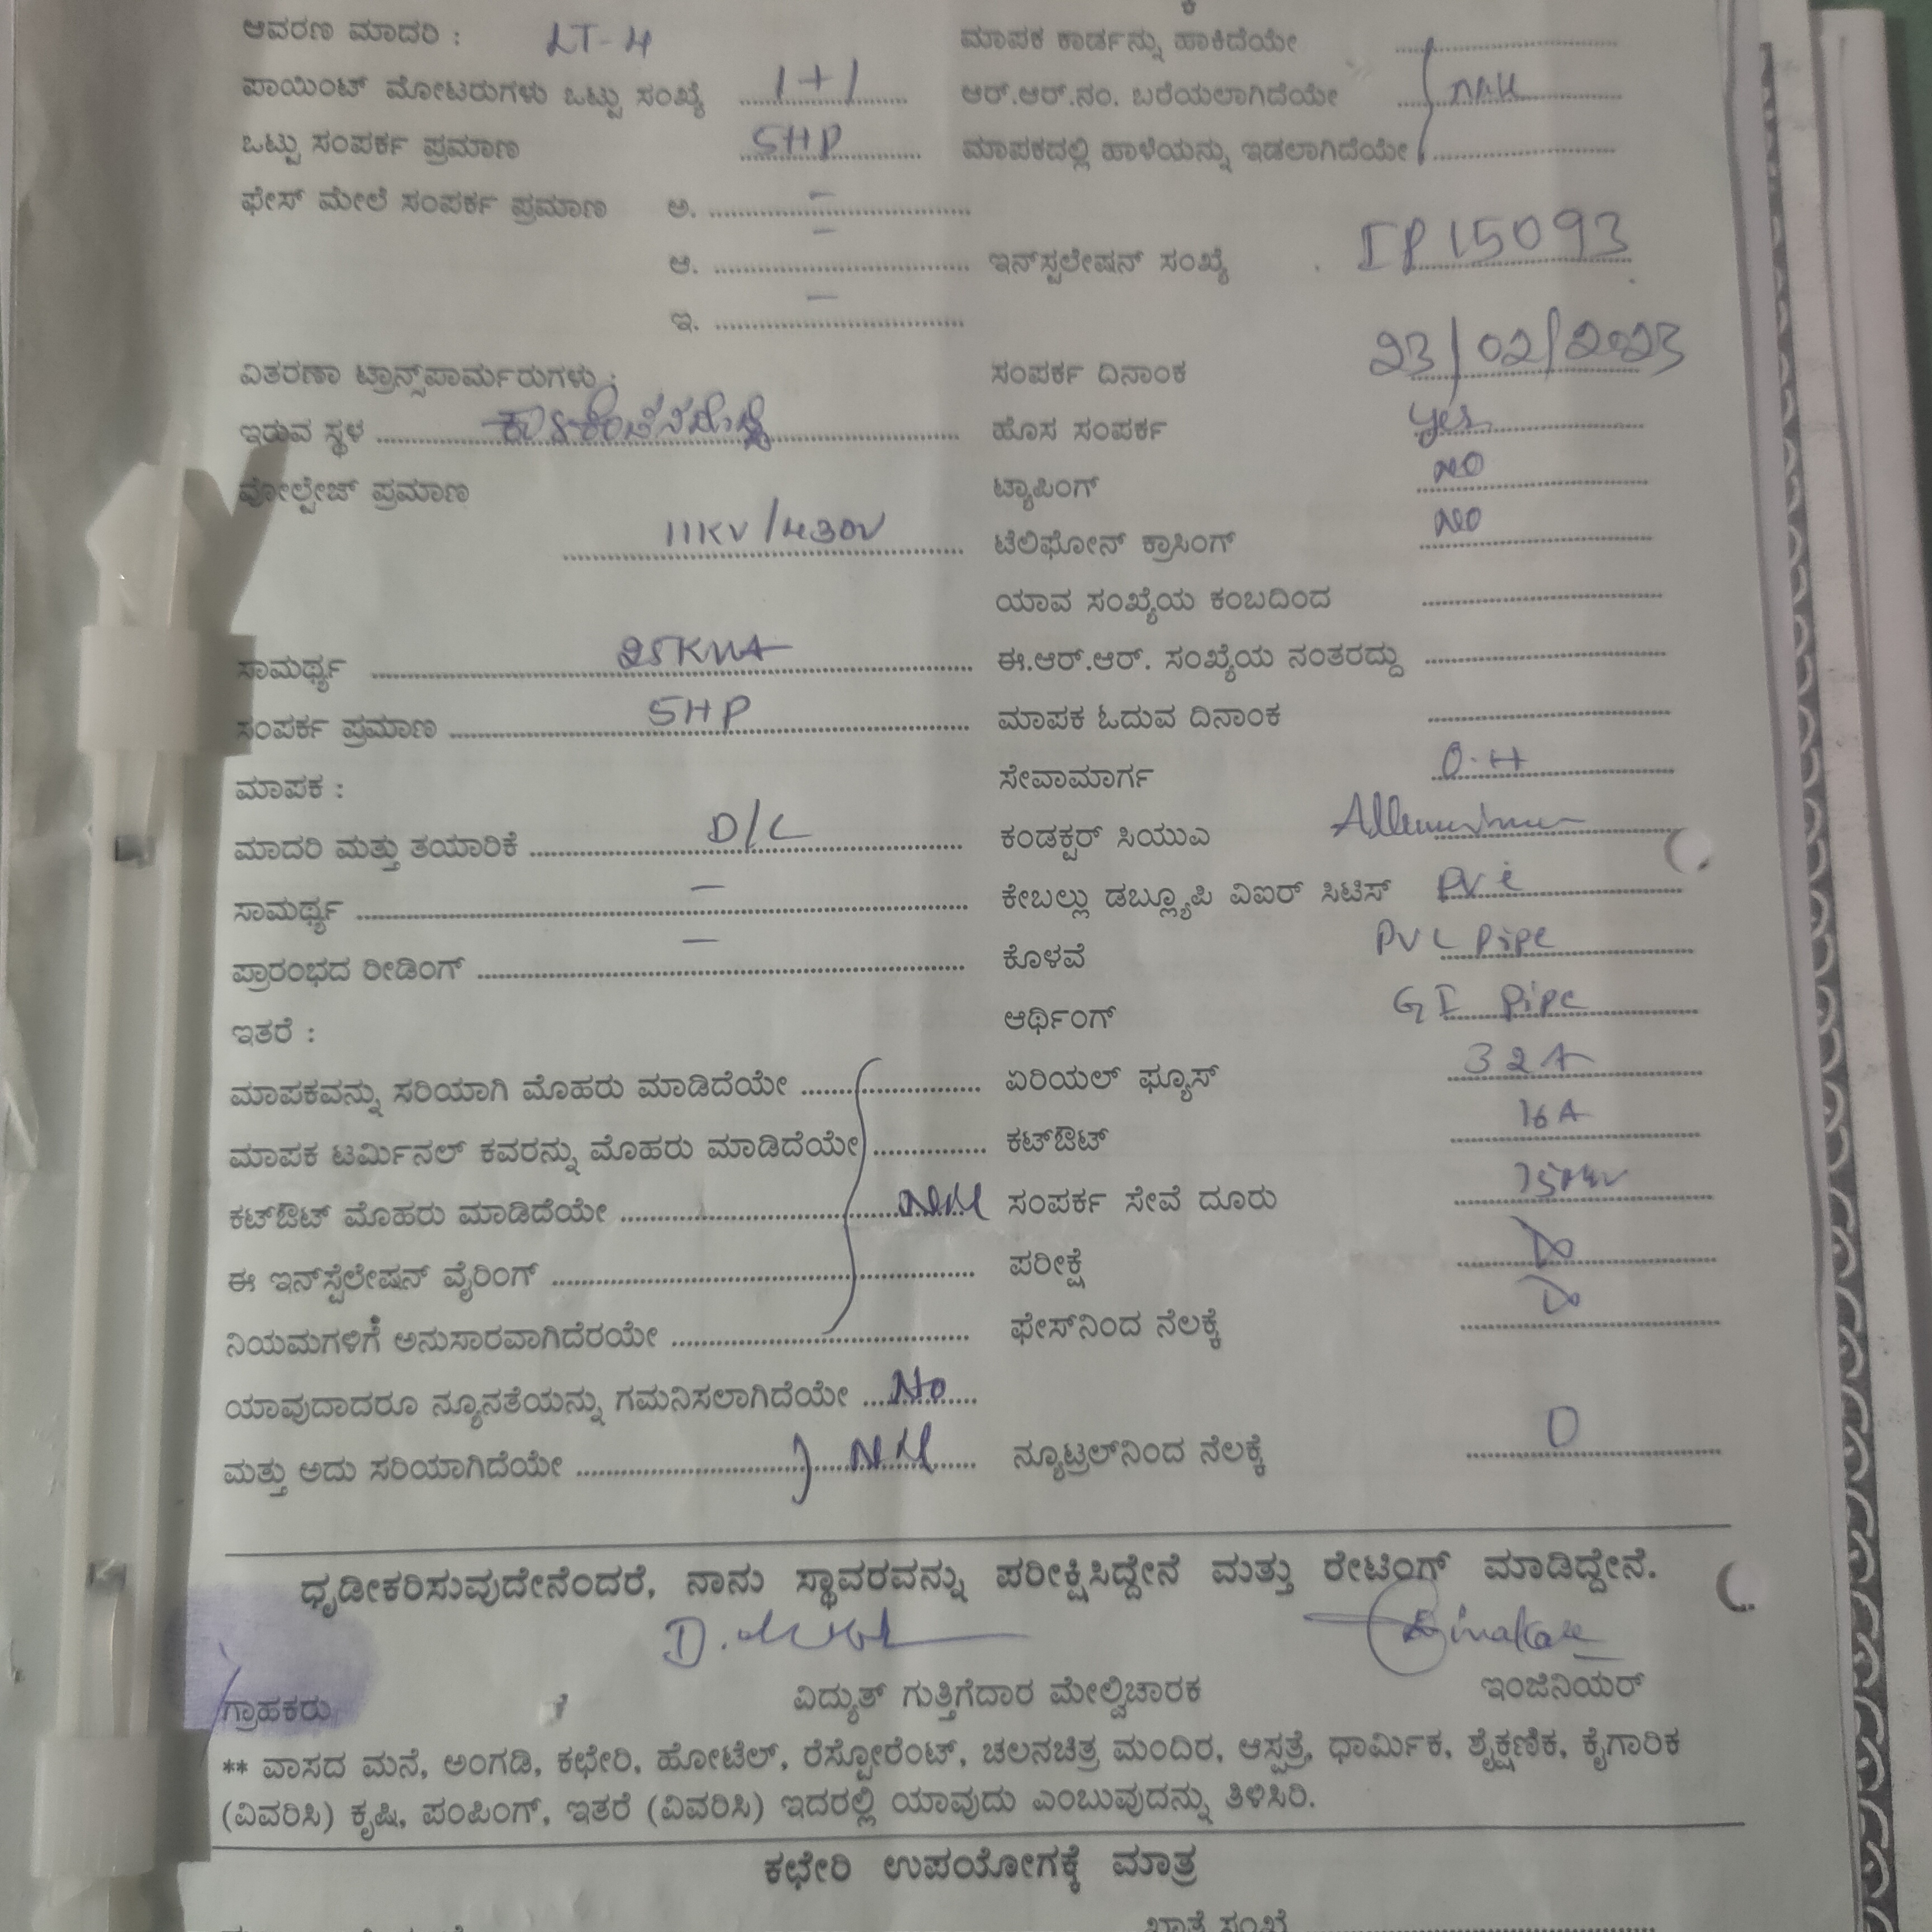 ಆವರಣ ಮಾದರಿ : LT-4
ಪಾಯಿಂಟ್ ಮೋಟರುಗಳು ಒಟ್ಟು ಸಂಖ್ಯೆ 1+1
ಒಟ್ಟು ಸಂಪರ್ಕ ಪ್ರಮಾಣ 5HP
ಫೇಸ್ ಮೇಲೆ ಸಂಪರ್ಕ ಪ್ರಮಾಣ ಅ. –
ಆ. –
ಇ. –
ವಿತರಣಾ ಟ್ರಾನ್ಸ್‌ಪಾರ್ಮರುಗಳು :
ಇರುವ ಸ್ಥಳ
ವೋಲ್ಟೇಜ್ ಪ್ರಮಾಣ
11KV/430V
ಸಾಮರ್ಥ್ಯ 25KVA
ಸಂಪರ್ಕ ಪ್ರಮಾಣ 5HP
ಮಾಪಕ :
ಮಾದರಿ ಮತ್ತು ತಯಾರಿಕೆ D/C
ಸಾಮರ್ಥ್ಯ –
ಪ್ರಾರಂಭದ ರೀಡಿಂಗ್ –
ಇತರೆ :
ಮಾಪಕವನ್ನು ಸರಿಯಾಗಿ ಮೊಹರು ಮಾಡಿದೆಯೇ
ಮಾಪಕ ಟರ್ಮಿನಲ್ ಕವರನ್ನು ಮೊಹರು ಮಾಡಿದೆಯೇ
ಕಟ್‌ಔಟ್ ಮೊಹರು ಮಾಡಿದೆಯೇ
ಈ ಇನ್‌ಸ್ಪೆಲೇಷನ್ ವೈರಿಂಗ್
ನಿಯಮಗಳಿಗೆ ಅನುಸಾರವಾಗಿದೆರಯೇ
ಯಾವುದಾದರೂ ನ್ಯೂನತೆಯನ್ನು ಗಮನಿಸಲಾಗಿದೆಯೇ No
ಮತ್ತು ಅದು ಸರಿಯಾಗಿದೆಯೇ
ಮಾಪಕ ಕಾರ್ಡನ್ನು ಹಾಕಿದೆಯೇ
ಆರ್.ಆರ್.ನಂ. ಬರೆಯಲಾಗಿದೆಯೇ
ಮಾಪಕದಲ್ಲಿ ಹಾಳೆಯನ್ನು ಇಡಲಾಗಿದೆಯೇ
ಇನ್‌ಸ್ಟಲೇಷನ್ ಸಂಖ್ಯೆ IP15093
ಸಂಪರ್ಕ ದಿನಾಂಕ 23/02/2023
ಹೊಸ ಸಂಪರ್ಕ yes
ಟ್ಯಾಪಿಂಗ್ NO
ಟೆಲಿಫೋನ್ ಕ್ರಾಸಿಂಗ್ NO
ಯಾವ ಸಂಖ್ಯೆಯ ಕಂಬದಿಂದ
ಈ.ಆರ್.ಆರ್. ಸಂಖ್ಯೆಯ ನಂತರದ್ದು
ಮಾಪಕ ಓದುವ ದಿನಾಂಕ
ಸೇವಾಮಾರ್ಗ O.H
ಕಂಡಕ್ಟರ್ ಸಿಯುಎ
ಕೇಬಲ್ಲು ಡಬ್ಲ್ಯೂಪಿ ವಿಐರ್ ಸಿಟಿಸ್ PVC
ಕೊಳವೆ PVC Pipe
ಆರ್ಥಿಂಗ್ GI Pipe
ಏರಿಯಲ್ ಫ್ಯೂಸ್ 32A
ಕಟ್‌ಔಟ್ 16A
ಸಂಪರ್ಕ ಸೇವೆ ದೂರು
ಪರೀಕ್ಷೆ
ಫೇಸ್‌ನಿಂದ ನೆಲಕ್ಕೆ
ನ್ಯೂಟ್ರಲ್‌ನಿಂದ ನೆಲಕ್ಕೆ
ಧೃಡೀಕರಿಸುವುದೇನೆಂದರೆ, ನಾನು ಸ್ಥಾವರವನ್ನು ಪರೀಕ್ಷಿಸಿದ್ದೇನೆ ಮತ್ತು ರೇಟಿಂಗ್ ಮಾಡಿದ್ದೇನೆ.
ಗ್ರಾಹಕರು ವಿದ್ಯುತ್ ಗುತ್ತಿಗೆದಾರ ಮೇಲ್ವಿಚಾರಕ ಇಂಜಿನಿಯರ್
** ವಾಸದ ಮನೆ, ಅಂಗಡಿ, ಕಛೇರಿ, ಹೋಟೆಲ್, ರೆಸ್ಟೋರೆಂಟ್, ಚಲನಚಿತ್ರ ಮಂದಿರ, ಆಸ್ಪತ್ರೆ, ಧಾರ್ಮಿಕ, ಶೈಕ್ಷಣಿಕ, ಕೈಗಾರಿಕ
(ವಿವರಿಸಿ) ಕೃಷಿ, ಪಂಪಿಂಗ್, ಇತರೆ (ವಿವರಿಸಿ) ಇದರಲ್ಲಿ ಯಾವುದು ಎಂಬುವುದನ್ನು ತಿಳಿಸಿರಿ.
ಕಛೇರಿ ಉಪಯೋಗಕ್ಕೆ ಮಾತ್ರ